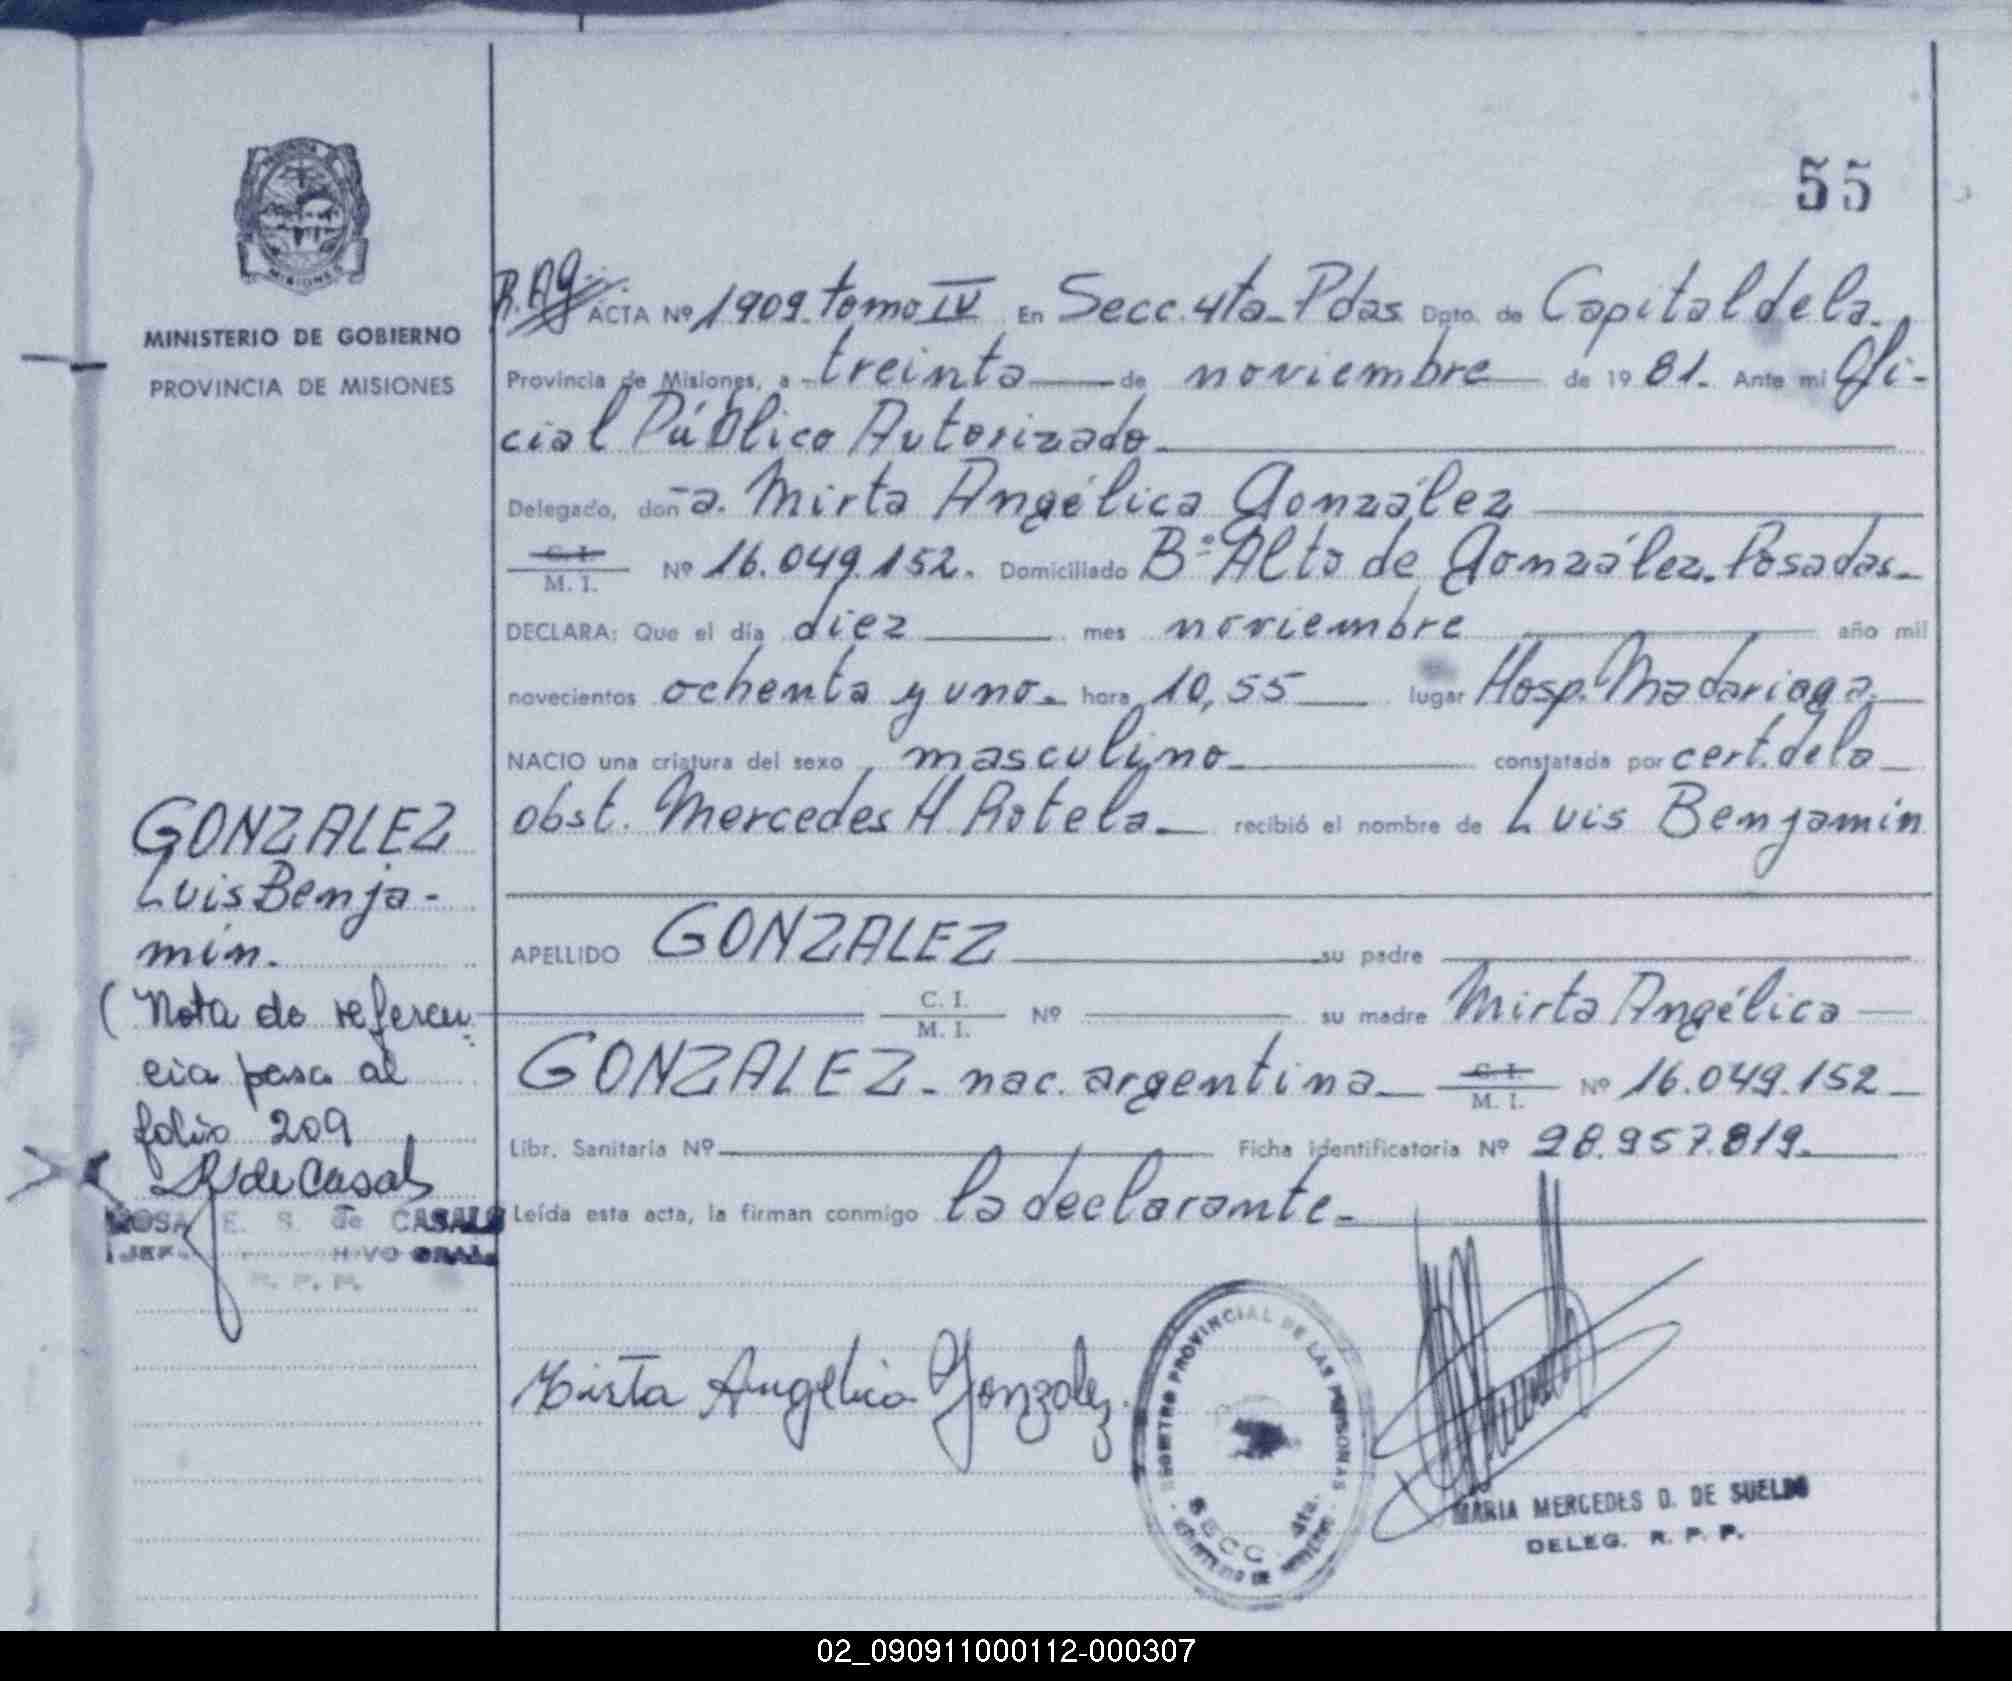 55
MISIONES
MINISTERIO DE GOBIERNO
PROVINCIA DE MISIONES
R.Ag. ACTA Nº 1909 tomo IV En Secc. 4ta_Pdas Dpto. de Capital de la
Provincia de Misiones, a treinta de noviembre de 1981. Ante mi Ofi-
cial Público Autorizado
Delegado, don-a. Mirta Angélica González
C. I.
M. I. Nº 16.049.152. Domiciliado Bº Alto de González. Posadas_
DECLARA: Que el día diez mes noviembre año mil
novecientos ochenta y uno_ hora 10,55 lugar Hosp. Madariaga.
NACIO una criatura del sexo masculino constatada por cert. de la
obst. Mercedes H. Rotela_ recibió el nombre de Luis Benjamín
APELLIDO GONZALEZ su padre
C. I.
M. I. Nº su madre Mirta Angélica
GONZALEZ_ nac. argentina C. I.
M. I. Nº 16.049.152
Libr. Sanitaria Nº Ficha identificatoria Nº 28.957.819.
Leída esta acta, la firman conmigo la declarante_
Mirta Angelica Gonzalez.
REGISTRO PROVINCIAL DE LAS PERSONAS
SECC. 4ta.
MARIA MERCEDES D. DE SUELDO
DELEG. R. P. P.
GONZALEZ
Luis Benja-
mín.
(Nota de referen-
cia pasa al
folio 209
R de Casals
ROSA E. S. de CASALS
R. P. P.
02_090911000112-000307